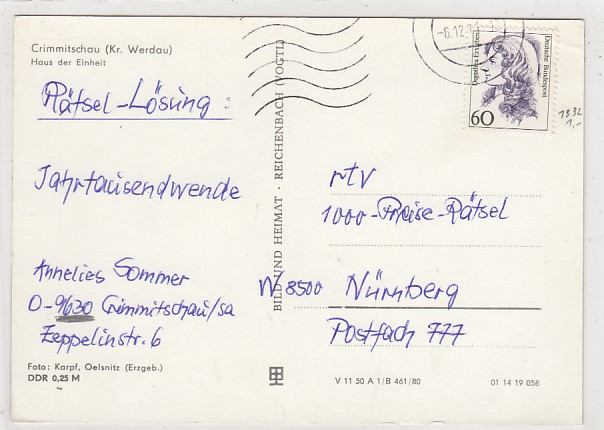 Crimmitschau (Kr. Werdau)
Haus der Einheit
Rätsel-Lösung:
Jahrtausendwende
Annelies Sommer
O-9630 Crimmitschau/Sa
Zeppelinstr. 6
Foto: Karpf, Oelsnitz (Erzgeb.)
DDR 0,25 M
BILD UND HEIMAT · REICHENBACH (VOGTL)
-6.12.
Deutsche Bundespost
60
1332
1,-
rtv
1000-Preise-Rätsel
W 8500 Nürnberg
Postfach 777
V 11 50 A 1/B 461/80
01 14 19 058